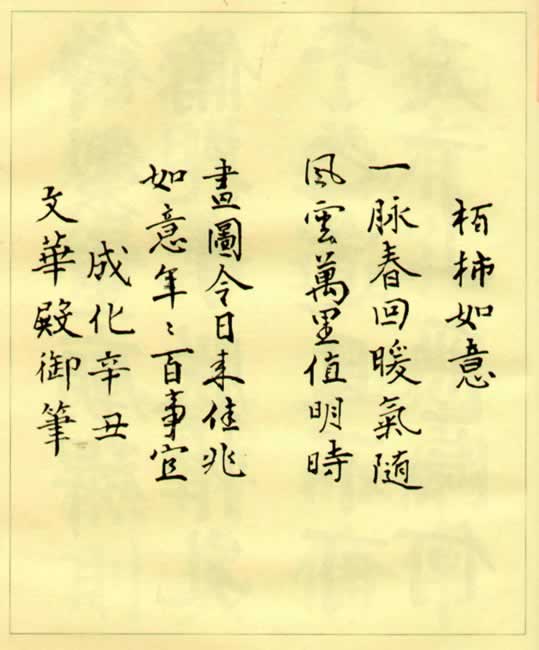 栢柿如意
一脉春回暖氣隨
風雲萬里值明時
畫圖今日来佳兆
如意年〻百事宜
成化辛丑
文華殿御筆